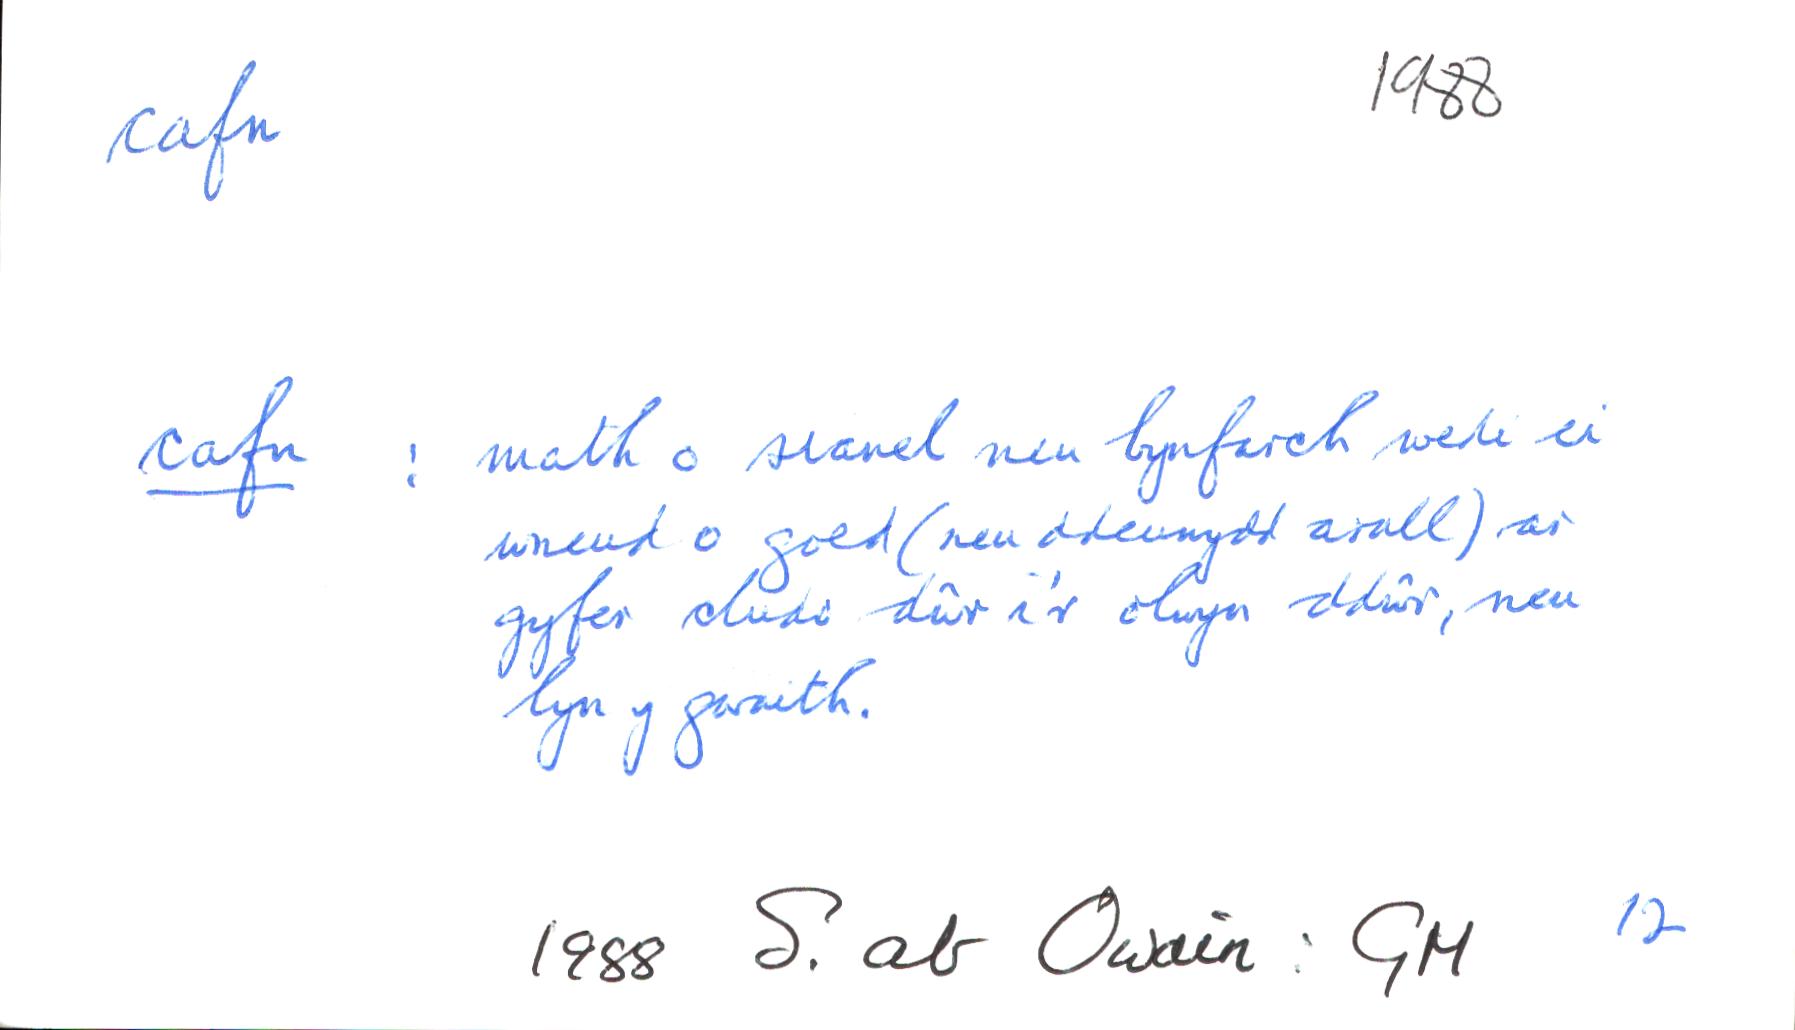 cafn 1988
cafn : math o sianel neu bynfarch wedi ei
wneud o goed (neu ddeunydd arall) ar
gyfer cludo dŵr i'r olwyn ddŵr, neu
lyn y gwaith.
1988 S. ab Owain : GM 12